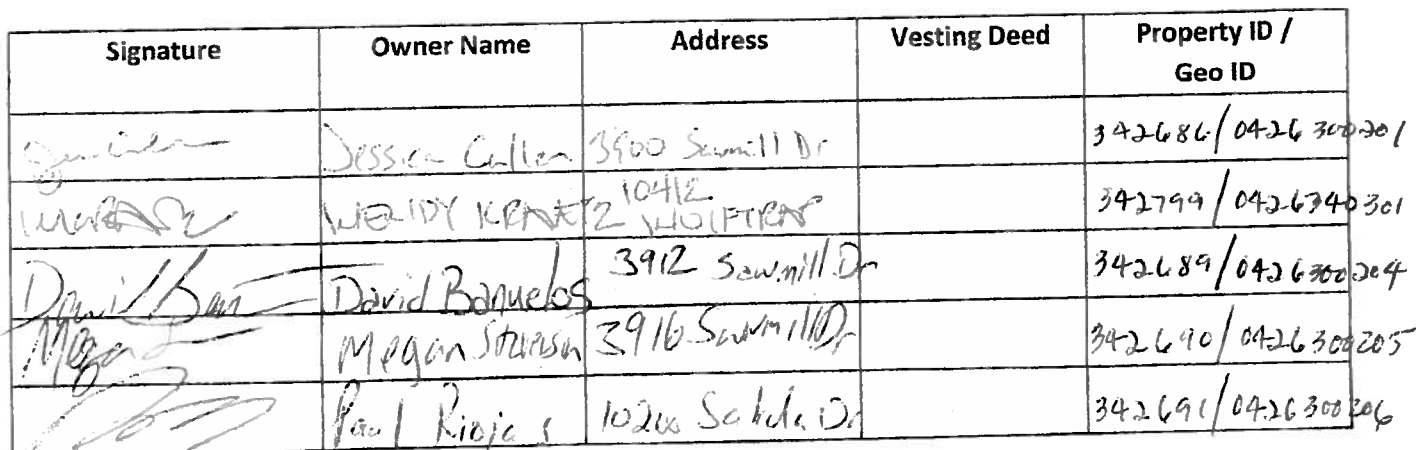 Signature Owner Name Address Vesting Deed Property ID /
Geo ID
Jessica Cullen 3900 Sawmill Dr 342686/0426300201
10412
WENDY KRAVETZ WOLFTRAP 342799/0426340301
David Banuelos 3912 Sawmill Dr 342689/0426300204
Megan 3916 Sawmill Dr 342690/0426300205
Paul Riojas Dr 342691/0426300206